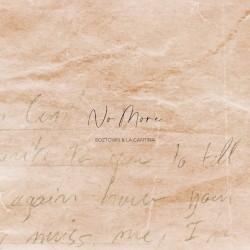 No More
BOZTOWN & LA CANTINA
write to you to tell
again how you
miss me, I